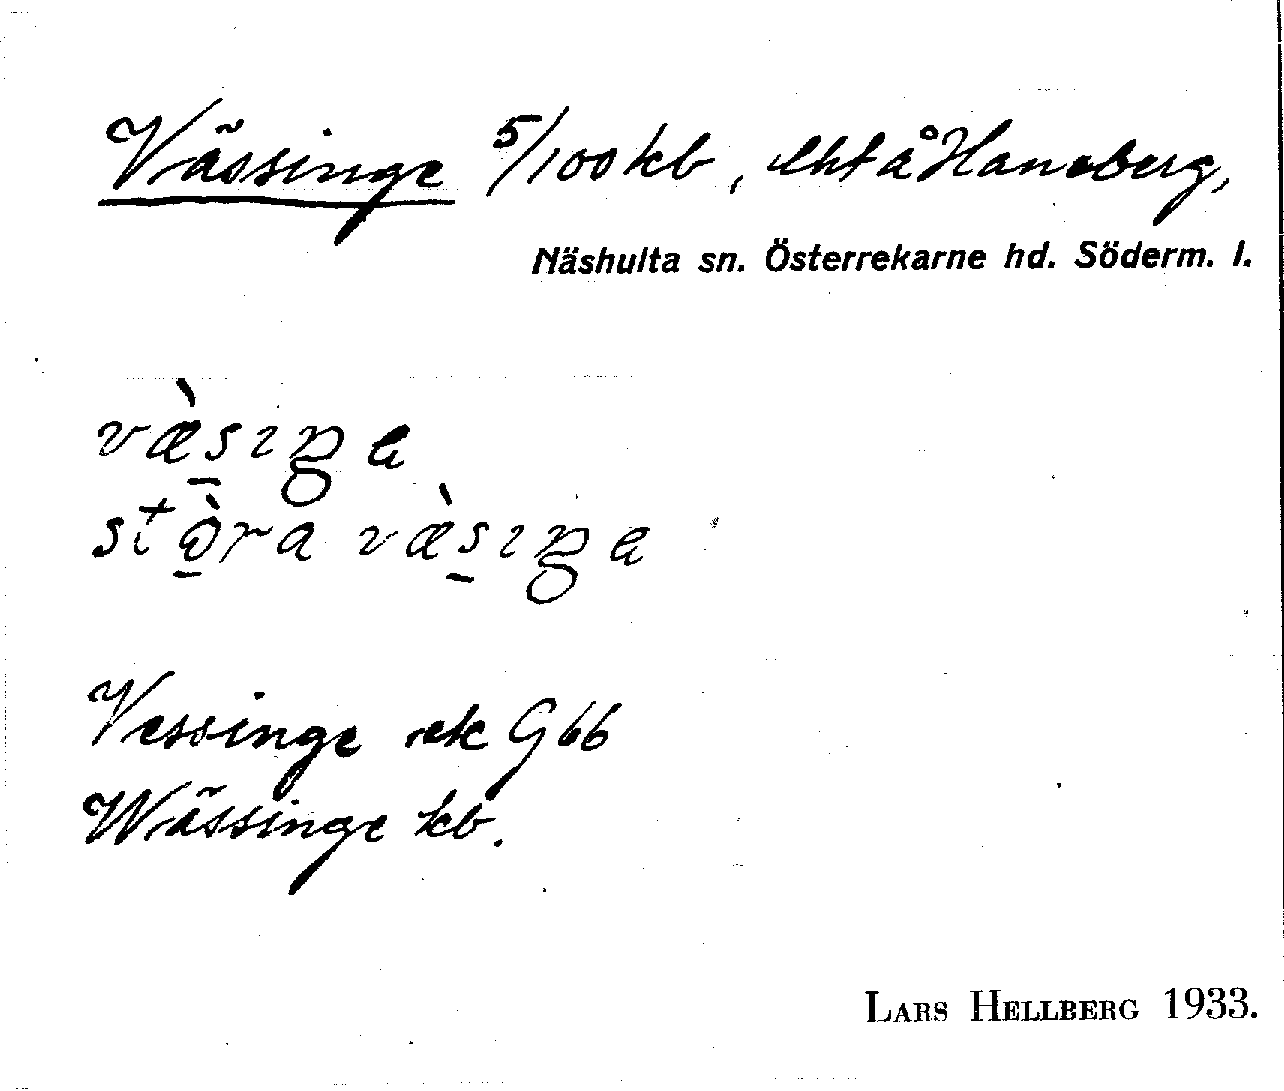 Vässinge 5/100 kb, lht å Haneberg,
Näshulta sn. Österrekarne hd. Söderm. l.
væ̀s̱ıŋe
stò̱ra væ̀s̱ıŋe
Vessinge ek G66
Wässinge kb.
LARS HELLBERG 1933.